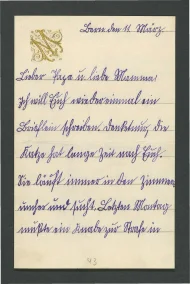 N
Bern den 11. März
Lieber Papa u liebe Mamma!
Ich will Euch wieder einmal ein
Brieflein schreiben. Denkt nur, die
Katze hat lange Zeit nach Euch.
Sie läuft immer in den Zimmern
umher und sucht. Letzten Montag
mußte ein Knabe zur Strafe in